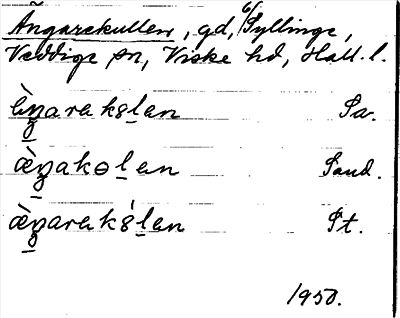 Ängarekullen, gd, 6/ Syllinge,
Veddige sn, Viske hd, Hall. l.
æ̀ŋarak8lan Sa.
æ̀ŋakɵlan Sand.
æ̀ŋarak8́lan St.
1950.